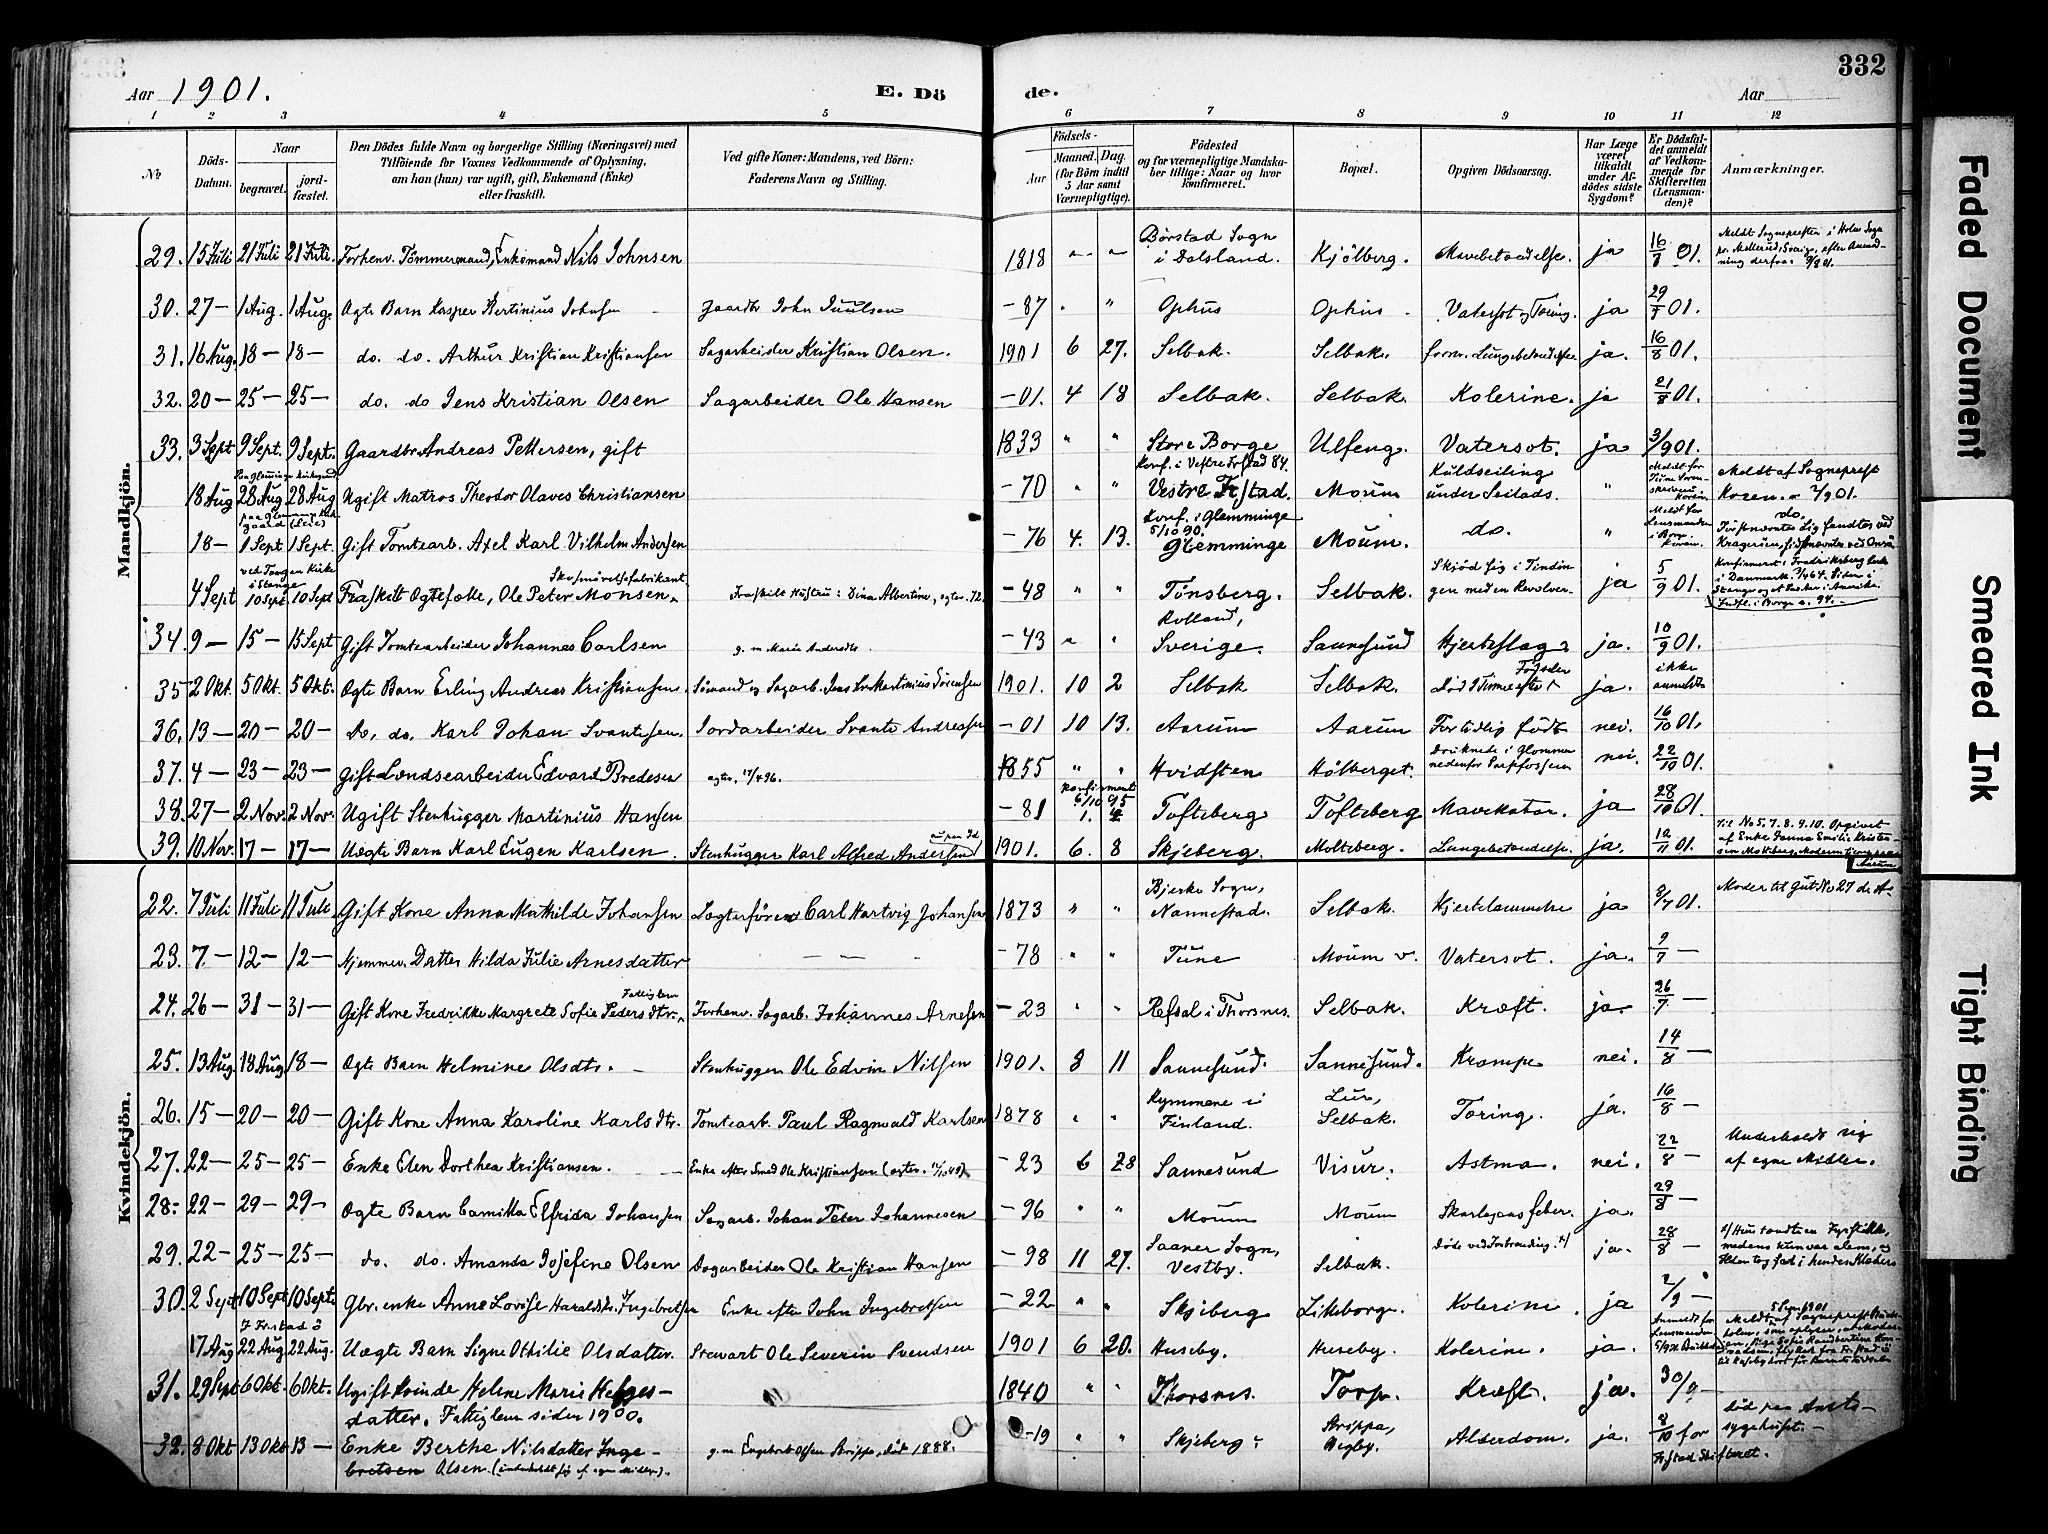 332
Aar 1901.
E. Dö
de.
Aar
1 2 3 4 5 6 7 8 9 10 11 12
No
Döds-Datum.
Naar
begravet.
jord-fæstet.
Den Dödes fulde Navn og borgerlige Stilling (Næringsvei) med
Tilföiende for Voxnes Vedkommende af Oplysning,
om han (hun) var ugift, gift, Enkemand (Enke)
eller fraskilt.
Ved gifte Koner: Mandens, ved Börn:
Faderens Navn og Stilling.
Födsels-
Aar
Maaned. Dag.
(for Börn indtil
5 Aar samt
Værnepligtige).
Födested
og for værnepligtige Mandska-
ber tillige: Naar og hvor
konfirmeret.
Bopæl.
Opgiven Dödsaarsag.
Har Læge
været
tilkaldt
under Af-
dödes sidste
Sygdom?
Er Dödsfal-
det anmeldt
af Vedkom-
mende for
Skifteretten
(Lensman-
den)?
Anmærkninger.
Mandkjön.
29. 15 Juli 21 Juli 21 Juli. Forhenv. Tömmermand, Enkemand Nils Johnsen 1818 " " Börstad Sogn i Dalsland. Kjölberg. Mavebetændelse. ja 16/7 01.
30. 27 — 1 Aug. 1 Aug. Ægte Barn Kasper Bertinius Johnsen Gaardbr John Juulsen — 87 " " Ophus Ophus Vatersot og Tæring. ja 29/7 01.
31. 16 Aug. 18 — 18 — do. do. Arthur Kristian Kristiansen Sagarbeider Kristian Olsen. 1901 6 27. Selbak. Selbak. ja. 16/8 01.
32. 20 — 25 — 25 — do. do Jens Kristian Olsen Sagarbeider Ole Hansen — 01. 4 18 Selbak. Selbak. Kolerine. ja 21/8 01.
33. 3 Sept 9 Sept. 9 Sept. Gaardbr Andreas Pettersen, gift 1833 " " Store Borge Ulfeng. Vatersot. ja 3/9 01.
18 Aug 28 Aug 28 Aug Ugift Matros Theodor Olaves Christiansen — 70 " " Konf. i Vestre Frstad 84. Vestre Frstad. Moum Kuldseiling under Seilads. " Meldt af Sogneprest Koren. 2/9 01.
18 — 1 Sept 1 Sept. Gift Tomtearb. Axel Karl Vilhelm Andersen — 76 4. 13. Konf. i Glemminge 5/10 90. Glemminge Moum. do. " do.
4 Sept ved Tangen Kirke i Stange 10 Sept 10 Sept Fraskilt Ægtefælle, Ole Peter Monsen. — 48 " " Tönsberg. Selbak. Skjöd sig i Tindingen med en Revolver. ja 5/9 01.
34. 9 — 15 — 15 Sept Gift Tomtearbeider Johannes Carlsen — 43 " " Sverige. Sannesund Hjerteslag ja. 10/9 01.
35 2 Okt. 5 Okt. 5 Okt. Ægte Barn Erling Andreas Kristiansen. 1901. 10 2 Selbak Selbak. ja. ikke anmeldt
36. 13 — 20 — 20 — Do. do. Karl Johan Svantesen. Jordarbeider Svante Andreasen — 01 10 13. Aarum Aarum For tidlig födt nei. 16/10 01.
37. 4 — 23 — 23 — Gift Lændsearbeider Edvard Bredesen 1855 " " Hvidsten Hölberget. Druknede i Glommen nedenfor Sarpfossen nei. 22/10 01.
38. 27 — 2 Nov. 2 Nov. Ugift Stenhugger Martinius Hansen — 81 Tofteberg Tofteberg Mavekatar. ja 28/10 01.
39. 10 Nov. 17 — 17 — Uægte Barn Karl Eugen Karlsen. Stenhugger Karl Alfred Andersen 1901. 6. 8 Skjeberg. Molteberg. Lungebetændelse. ja. 12/11 01.
Kvindekjön.
22. 7 Juli 11 Juli 11 Juli Gift Kone Anna Mathilde Johansen Lægterförer Carl Hartvig Johansen 1873 " " Bjerke Sogn, Nannestad. Selbak. Hjertelammelse ja 8/7 01. Moder til Gut No 27 d. A.
23. 7 — 12 — 12 — Hjemmev. Datter Hilda Julie Arnesdatter — — — — 78 " " Tune Moum v. Vatersot. ja. 9/7 —
24. 26 — 31 — 31 — Gift Kone Fredrikke Margrete Sofie Pedersdtr. Fattiglem Forhenv. Sagarb. Johannes Arnesen — 23 " " Refsal i Thorsnes. Selbak. Kræft. ja. 26/7 —
25. 13 Aug 18 Aug 18 — Ægte Barn Helmine Olsdtr. Stenhugger Ole Edvin Nilsen 1901. 8 11 Sannesund. Sannesund. Krampe nei. 14/8 —
26. 15 — 20 — 20 — Gift Kone Anna Karoline Karlsdtr. Tomtearb. Paul Ragnvald Karlsen 1878 " " Kymmene i Finland. Lur, Selbak. Tæring. ja. 16/8 —
27. 22 — 25 — 25 — Enke Elen Dorthea Kristiansen. Enke efter Smed Ole Kristiansen — 23 6 28 Sannesund Visur. Astma. nei. 22/8 — Underholdt sig af egne Midler.
28. 22 — 29 — 29 — Ægte Barn Camilla Elfrida Johansen Sagarb. Johan Peter Johannesen — 96 " " Moum Moum Skarlagensfeber. ja. 29/8 —
29. 22 — 25 — 25 — do. do. Amanda Josefine Olsen Dagarbeider Ole Kristian Hansen — 98 11 27. Saaner Sogn, Vestby. Selbak. Döde ved Forbrænding. x) ja. 28/8 — x) Hun tændte en Fyrstikke, medens hun var alene, og Ilden tog fat i hendes Klæder
30. 2 Sept 10 Sept 10 Sept. Gbr. enke Anne Lovise Haraldsdtr. Ingebretsen Enke efter John Ingebretsen — 22 " " Skjeberg Lilleborge. Kolerine. ja 2/9 —
17 Aug 22 Aug 22 Aug. Uægte Barn Signe Othilie Olsdatter. Stewart Ole Severin Svendsen 1901 6 20. Huseby. Huseby. Kolerine. ja.
31. 29 Sept 6 Okt. 6 Okt. Ugift Kvinde Helene Marie Helges-
datter. Fattiglem siden 1900. 1840 " " Thorsnes. Torp. Kræft. ja. 30/9 —
32. 8 Okt 13 Okt 13 — Enke Berthe Nilsdatter Inge-
bretsen Olsen. (underholdt sig af egne Midler). g.m. Engebret Olsen Strippa, död 1888. — 19 " " Skjeberg. Strippa, Begby. Alderdom. ja. 8/10 for Frstad Skifteret. död paa Amts-sygehuset.
Faded Document
Smeared Ink
Tight Binding